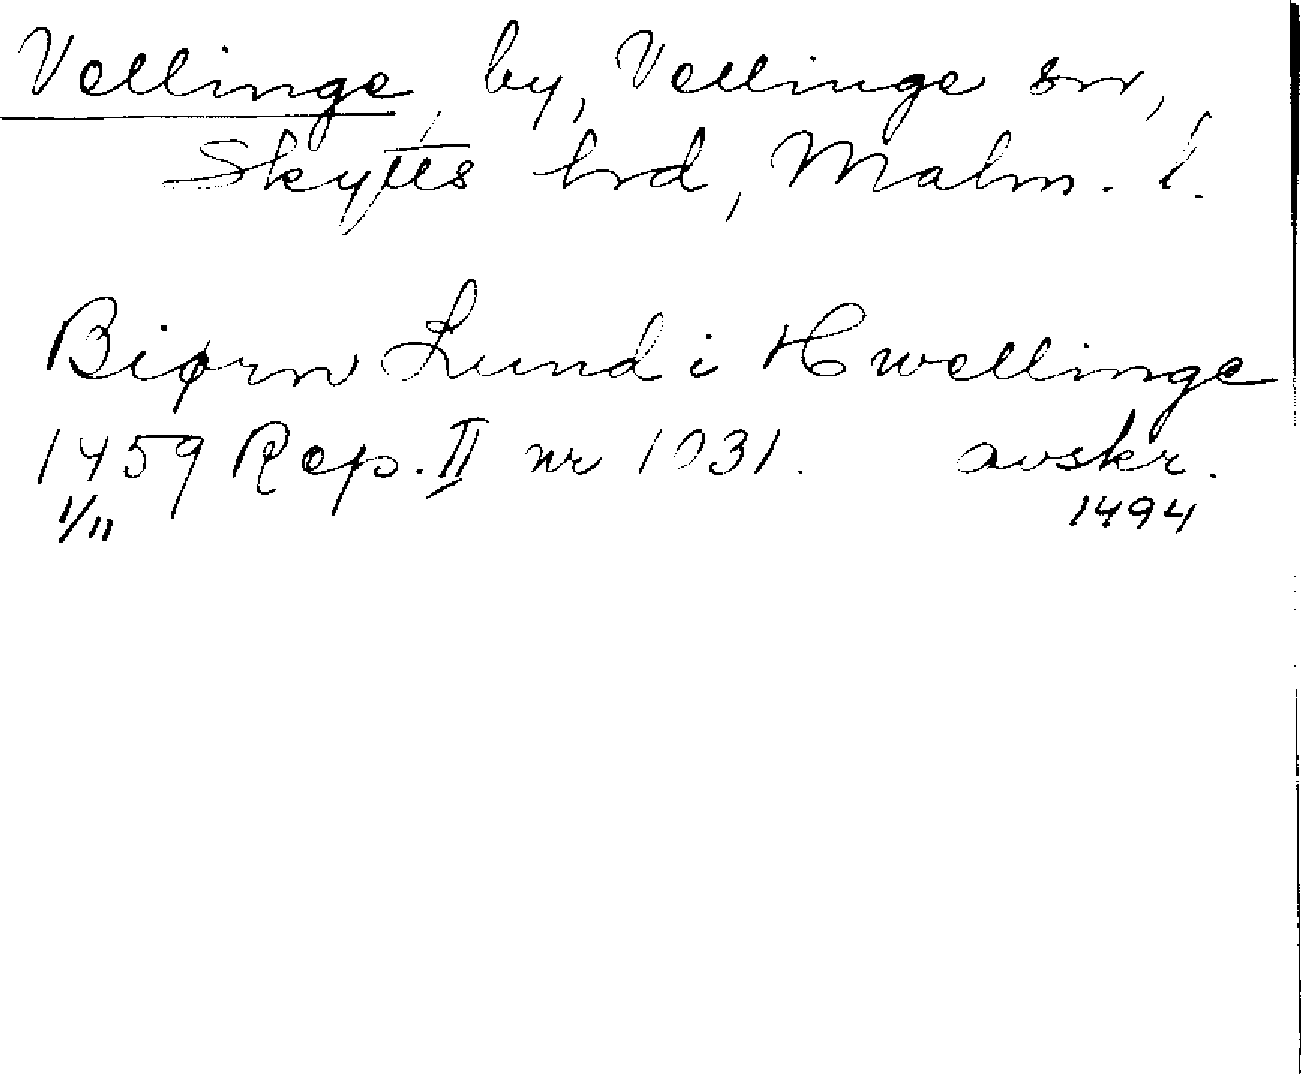 Vellinge by, Vellinge sn,
Skytts hrd, Malm. l.
Biørn Lund i Hwellinge
1459 Rep. II nr 1031. avskr.
1/11 1494